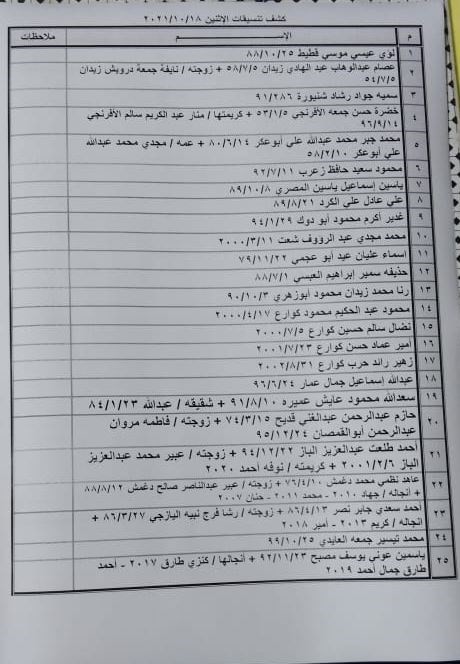 كشف تنسيقات الاثنين ٢٠٢١/١٠/١٨
م الإســـم ملاحظات
١ لؤي عيسي موسي قطيط ٨٨/١٠/٢٥
٢ عصام عبدالوهاب عبد الهادي زيدان ٥٨/٧/٥ + زوجته / نايفة جمعة درويش زيدان
٥٤/٧/٥
٣ سميه جواد رشاد شنيورة ٩١/٢٨٦
٤ خضرة حسن جمعه الأفرنجي ٥٣/١/٥ + كريمتها / منار عبد الكريم سالم الأفرنجي
٩٦/٩/١٤
٥ محمد جبر محمد عبدالله علي أبو عكر ٨٠/٦/١٤ + عمه / مجدي محمد عبدالله
علي أبو عكر ٥٨/٢/١٠
٦ محمود سعيد حافظ زعرب ٩٢/٧/١١
٧ ياسين إسماعيل ياسين المصري ٨٩/١٠/٨
٨ علي عادل علي الكرد ٨٩/٨/٢١
٩ غدير أكرم محمود أبو دود ٩٤/١/٢٩
١٠ محمد مجدي عبد الرووف شعت ٢٠٠٠/٣/١١
١١ اسماء عليان عيد أبو عجمي ٧٩/١١/٢٢
١٢ حذيفه سمير إبراهيم العبسي ٨٨/٧/١
١٣ رنا محمد زيدان محمود أبوزهري ٩٠/١٠/٣
١٤ محمود عبد الحكيم محمود كوارع ٢٠٠٠/٤/١٧
١٥ نضال سالم حسين كوارع ٢٠٠٠/٧/٥
١٦ أمير عماد حسن كوارع ٢٠٠١/٧/٢٣
١٧ زهير رائد حرب كوارع ٢٠٠٢/٨/٣١
١٨ عبدالله إسماعيل جمال عمار ٩٦/٦/٢٤
١٩ سعدالله محمود عايش عميره ٩١/٨/١٠ + شقيقه / عبدالله ٨٤/١/٢٣
٢٠ حازم عبدالرحمن عبدالغني قديح ٧٤/٣/١٥ + زوجته / فاطمه مروان
عبدالرحمن أبوالقمصان ٩٥/١٢/٢٤
٢١ أحمد طلعت عبدالعزيز الباز ٩٤/١٢/٢٢ + زوجته / عبير محمد عبدالعزيز
الباز ٢٠٠١/٢/٦ + كريمته / نوفه أحمد ٢٠٢٠
٢٢ عاهد نظمي محمد دغمش ٧٦/٤/١٠ + زوجته / عبير عبدالناصر صالح دغمش ٨٨/٨/١٢
+ أنجاله / جهاد ٢٠١٠ - محمد ٢٠١١ - حنان ٢٠٠٧
٢٣ أحمد سعدي جابر نصر ٨٦/٤/١٣ + زوجته / رشا فرج نبيه اليازجي ٨٦/٣/٢٧ +
أنجاله / كريم ٢٠١٣ - أمير ٢٠١٨
٢٤ محمد تيسير جمعه العايدي ٩٩/١٠/٢٥
٢٥ ياسمين عوني يوسف مصبح ٩٢/١١/٢٣ + أنجالها / كنزي طارق ٢٠١٧ - أحمد
طارق جمال أحمد ٢٠١٩